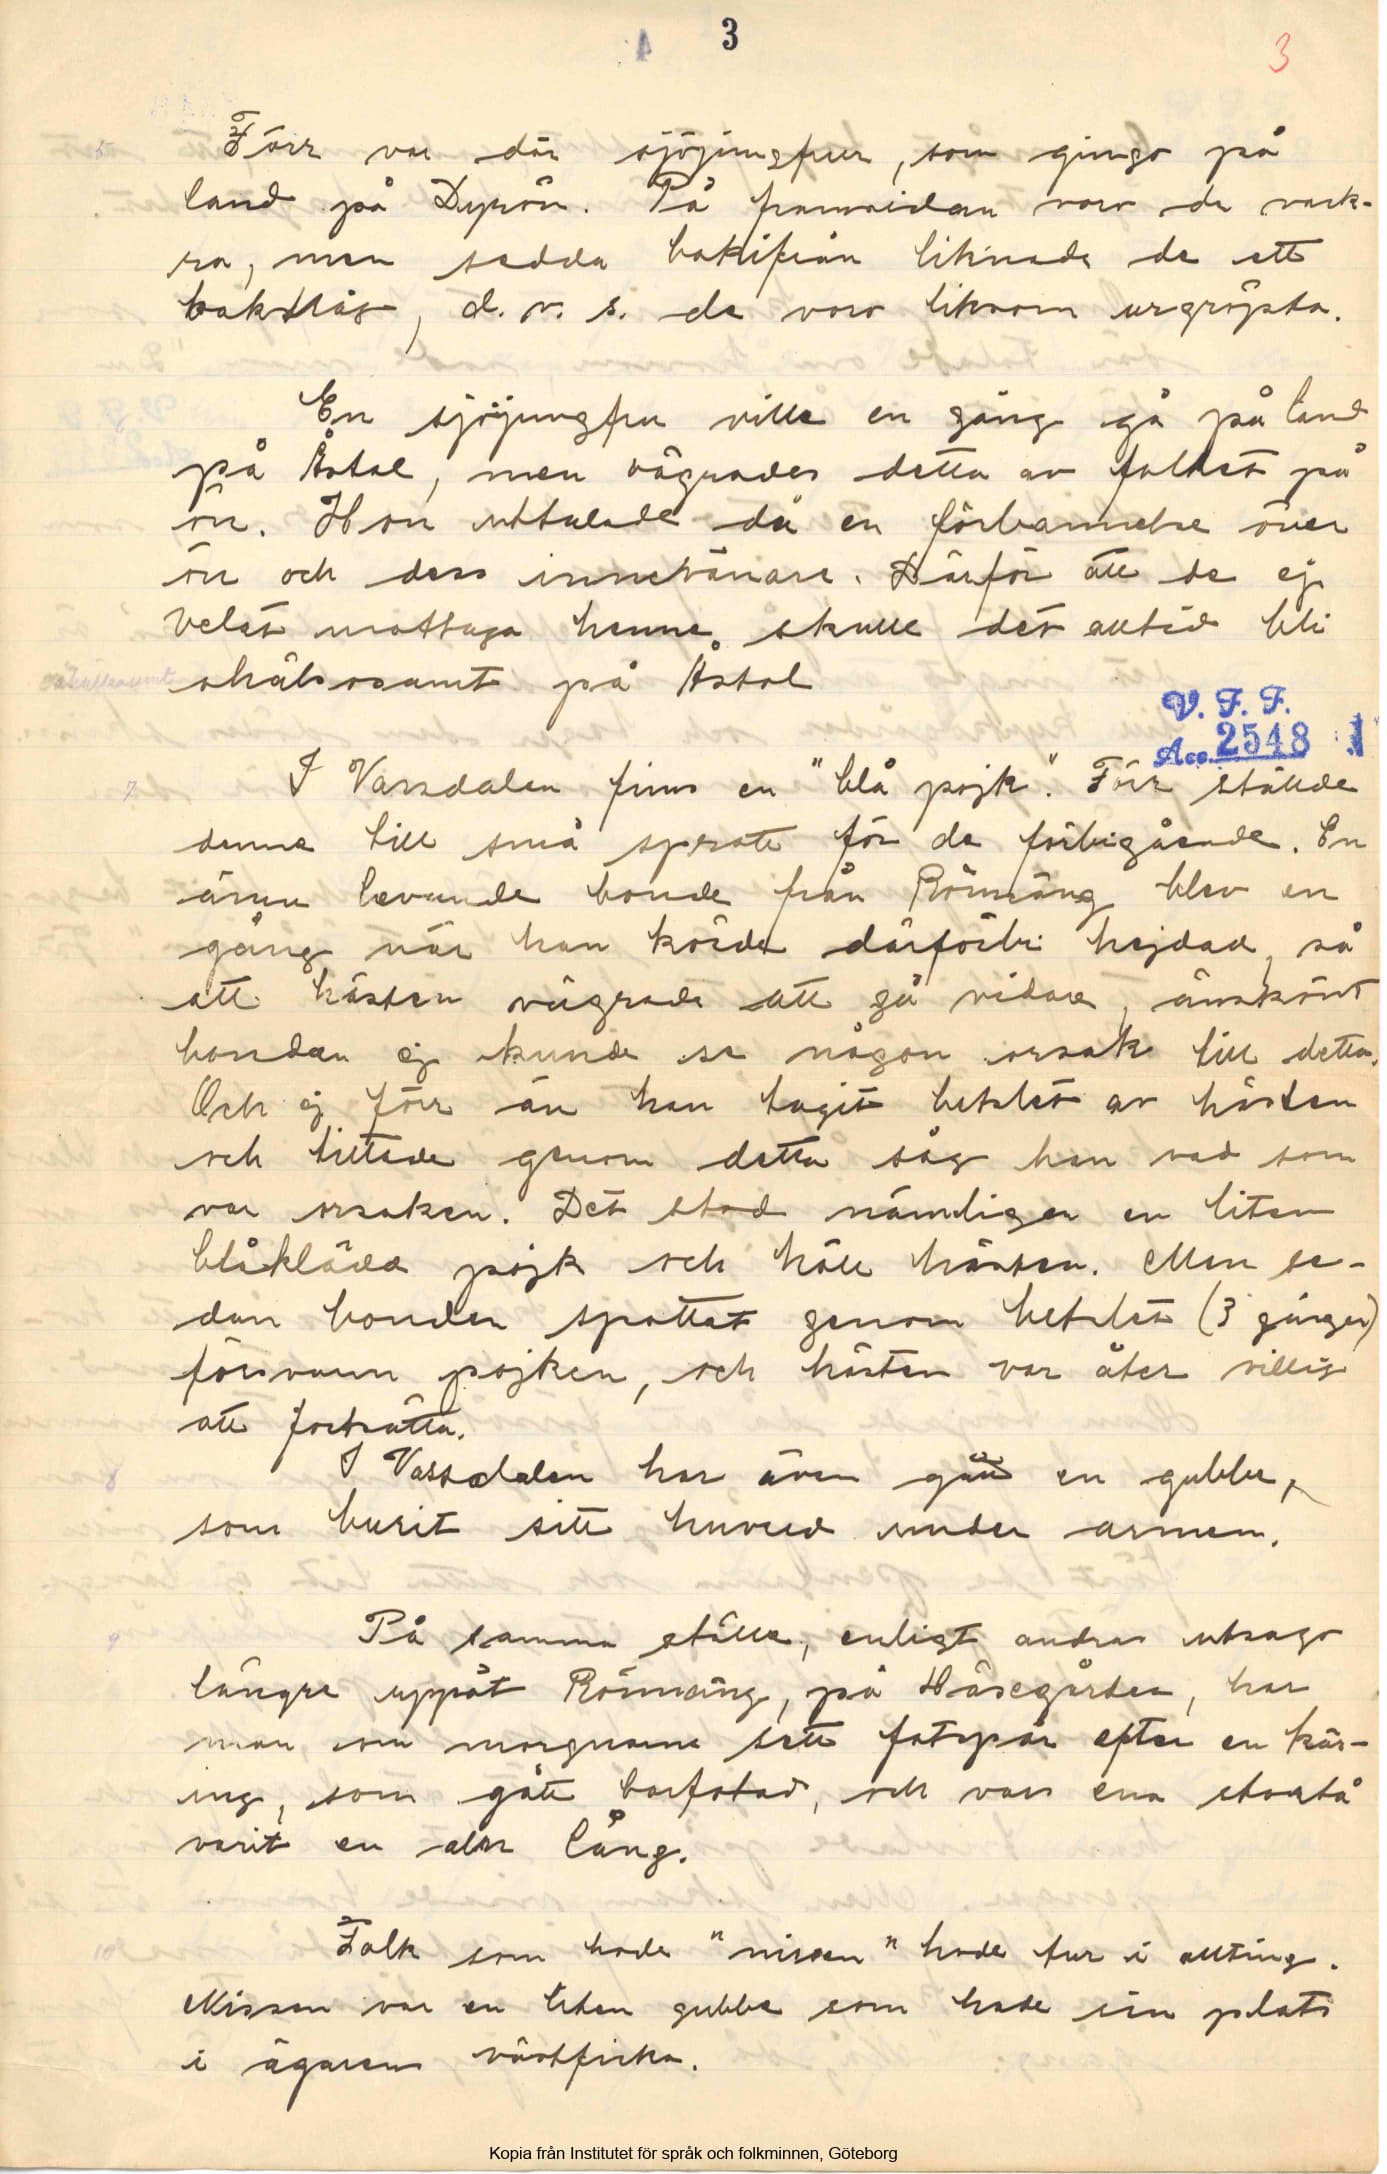 3
3
5
Förr var där sjöjungfrur, som gingo på
land på Dyrön. På framsidan voro de vack-
ra, men sedda bakifrån liknade de ett
baktråg, d.v.s. de voro liksom urgröpta.
6
En sjöjungfru ville en gång gå på land
på Åstol, men vägrades detta av folket på
ön. Hon uttalade då en förbannelse över
ön och dess innevånare. Därför att de ej
velat mottaga henne skulle det alltid bli
på Åstol
V. F. F.
Acc. 2548 :1
7
I Vassdalen finns en "blå pojk". Förr ställde
denne till små spratt för de förbigående. En
ännu levande bonde från Rönnäng blev en
gång när han körde därförbi hejdad, så
att hästen vägrade att gå vidare, änskönt
bonden ej kunde se någon orsak till detta.
Och ej förr än han tagit betslet av hästen
och tittade genom detta såg han vad som
var orsaken. Det stod nämligen en liten
blåklädd pojk och höll hästen. Men se-
dan bonden spottat genom betslet (3 gånger)
försvann pojken, och hästen var åter villig
att fortsätta.
8
I Vassdalen har även gått en gubbe,
som burit sitt huvud under armen.
9
På samma ställe, enligt andras utsago
längre uppåt Rönnäng, på Håsegården, har
man om morgnarna sett fotspår efter en kär-
ing, som gått barfotad, och vars ena stortå
varit en aln lång.
10
Folk som hade "nissen" hade tur i allting.
Nissen var en liten gubbe som hade sin plats
i ägarens västficka.
Kopia från Institutet för språk och folkminnen, Göteborg